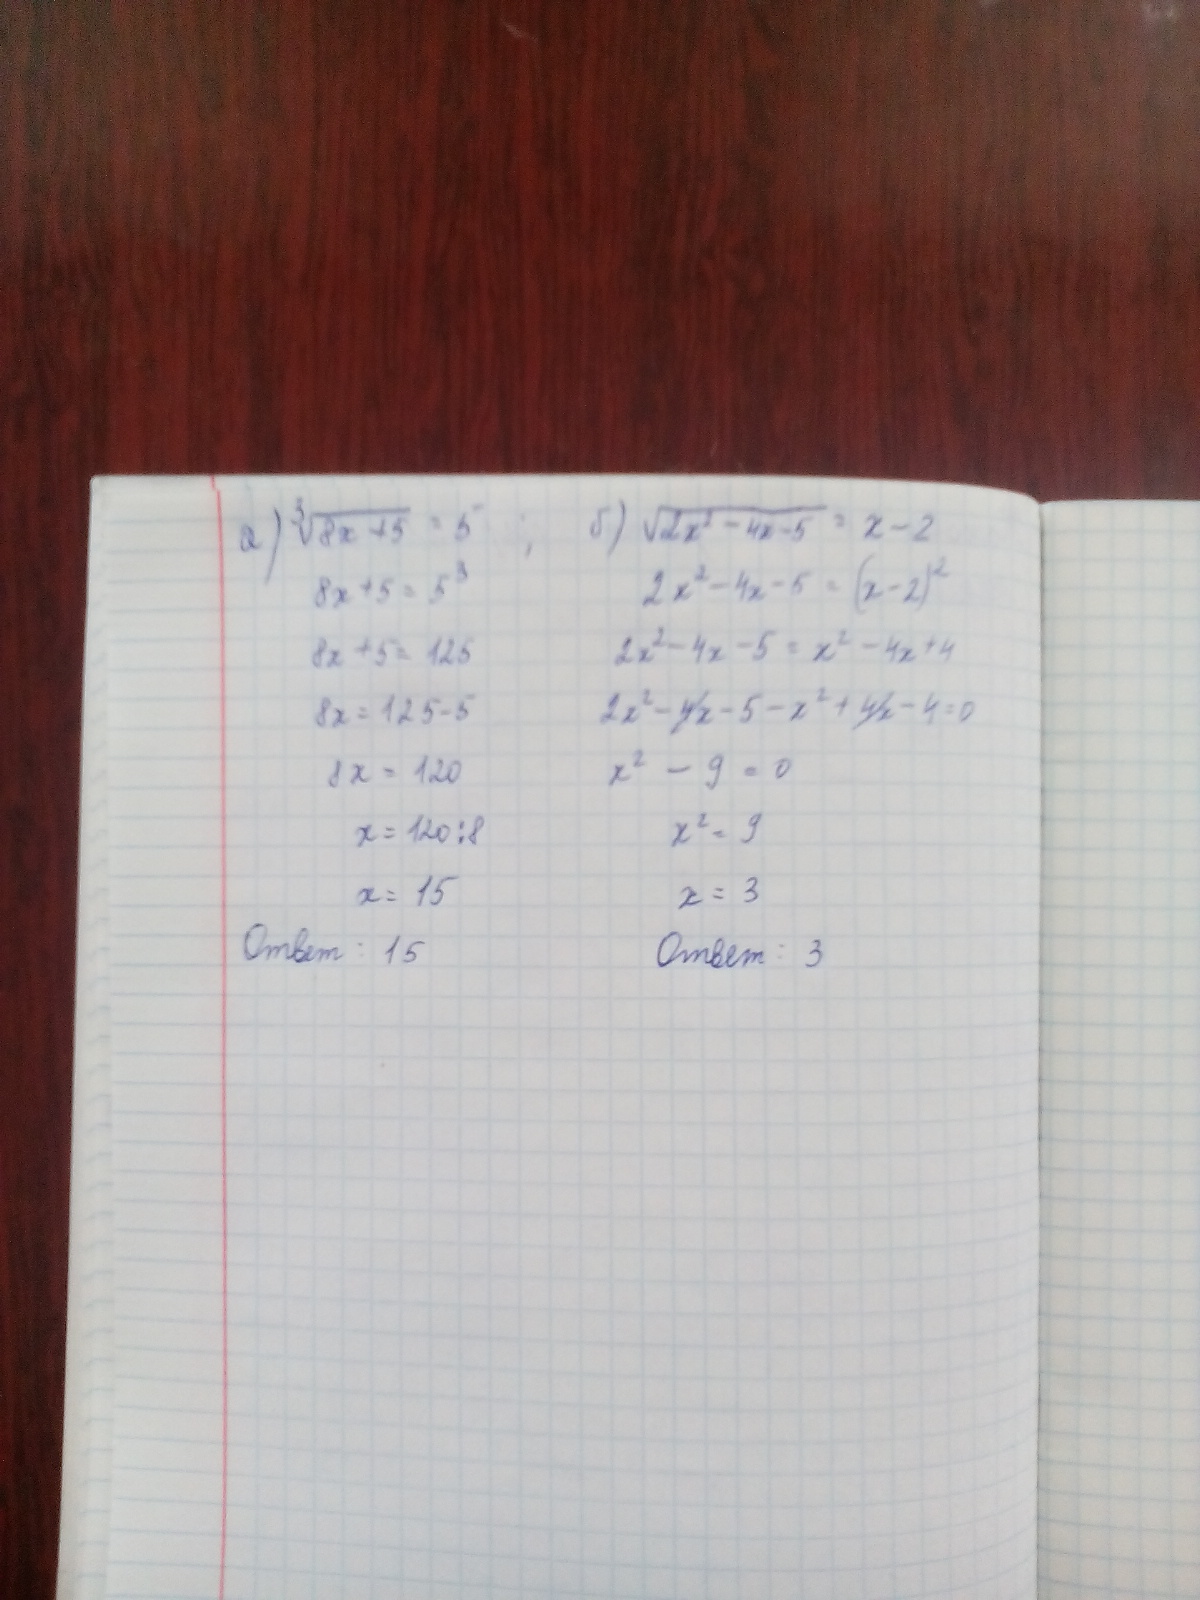 а) ∛(8x+5) = 5 ;
8x+5 = 5³
8x+5 = 125
8x = 125-5
8x = 120
x = 120:8
x = 15
Ответ: 15
б) √(2x² - 4x - 5) = x - 2
2x² - 4x - 5 = (x-2)²
2x² - 4x - 5 = x² - 4x + 4
2x² - 4x - 5 - x² + 4x - 4 = 0
x² - 9 = 0
x² = 9
x = 3
Ответ: 3